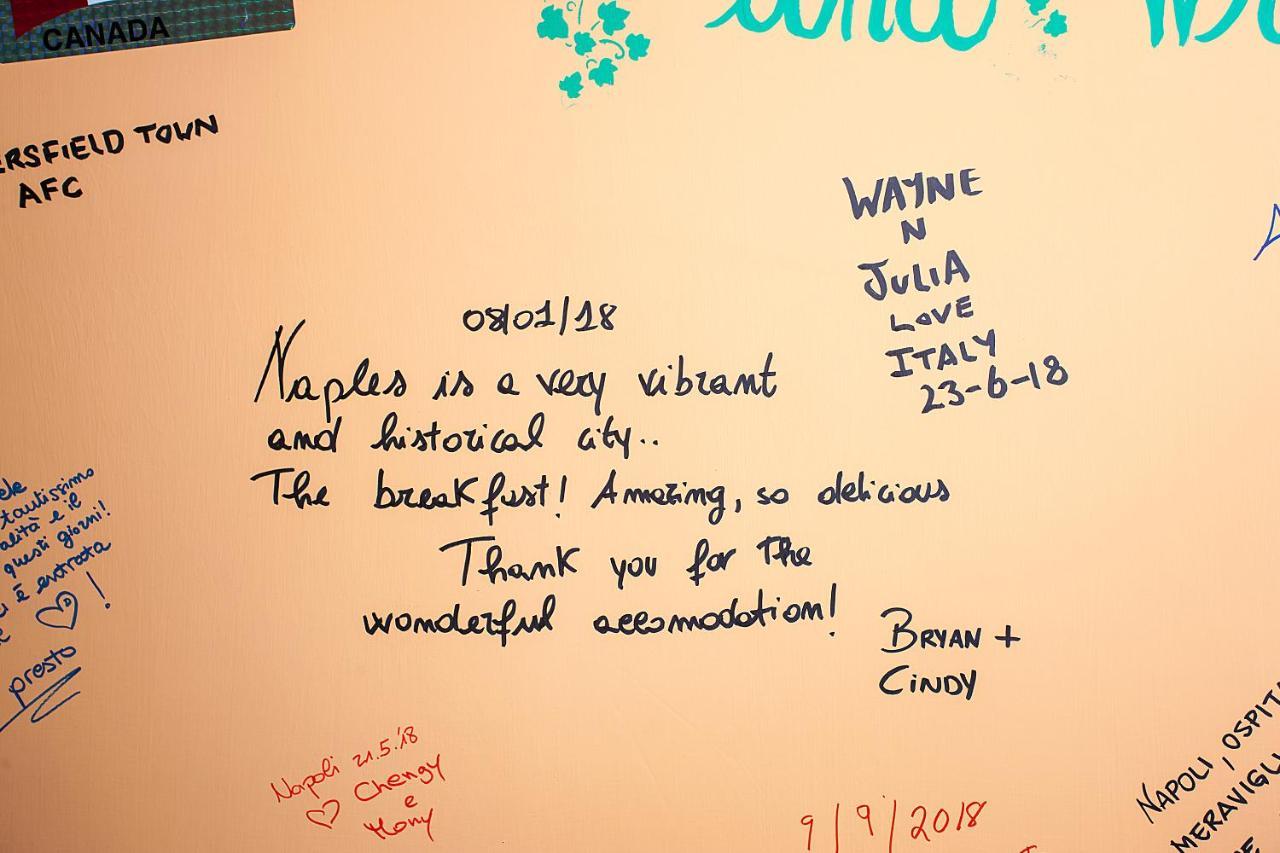 CANADA
and
ERSFIELD TOWN
AFC
WAYNE
N
JULIA
LOVE
ITALY
23-6-18
08/01/18
Naples is a very vibrant
and historical city..
The breakfast! Amazing, so delicious
Thank you for the
wonderful accomodation!
BRYAN +
CINDY
tantissimo
alità e il
questi giorni!
è entrata
!
presto
Napoli 21.5.'18
Chengy
e
Mony
9/9/2018
NAPOLI, OSPITA
MERAVIGLI